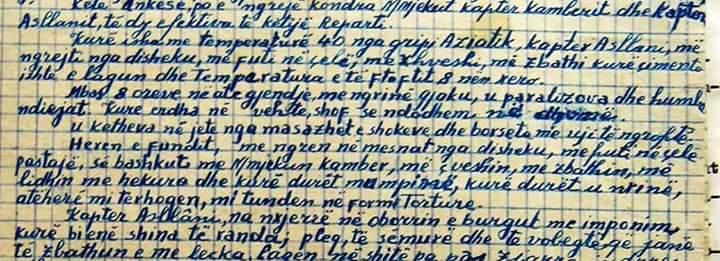 Këtë ankesë, po e ngrejë kondra N/Mjekut Kapter Kamberit dhe Kapter
Asllanit, të dy efektiva të këtije Reparti.
Kurë isha me temperaturë 40 nga gripi Aziatik, Kapter Asllani, më
ngrejti nga disheku, më futi në çelë, më xhveshi, më zbathi kurë çimento
ishte e lagun dhe Temperatura e të ftoftit 8 nën xero.
Mbas 8 oreve në atë gjendje, me ngrinë gjaku, u paralizova dhe humba
ndiejat. Kure erdha në vehte, shof se ndodhem në
u ktheva në jetë nga masazhet e shokeve dhe borseta me ujë të ngroftë.
Heren e fundit, me ngren në mesnat nga disheku, me futi në çelë
pastajë, së bashkuto me N/mjekun Kamber, më çveshin, me zbathin, më
lidhin me hekura dhe kurë durët kurë durët u nrinë,
atëherë mi tërhogen, mi tunden në formë Torture.
Kapter Asllani, na nxjerrë në oborrin e burgut me imponim,
kurë bienë shina të randa; pleq, të sëmurë dhe të vobegtë që janë
të zbathun e me lecka, lagen në shitë pa